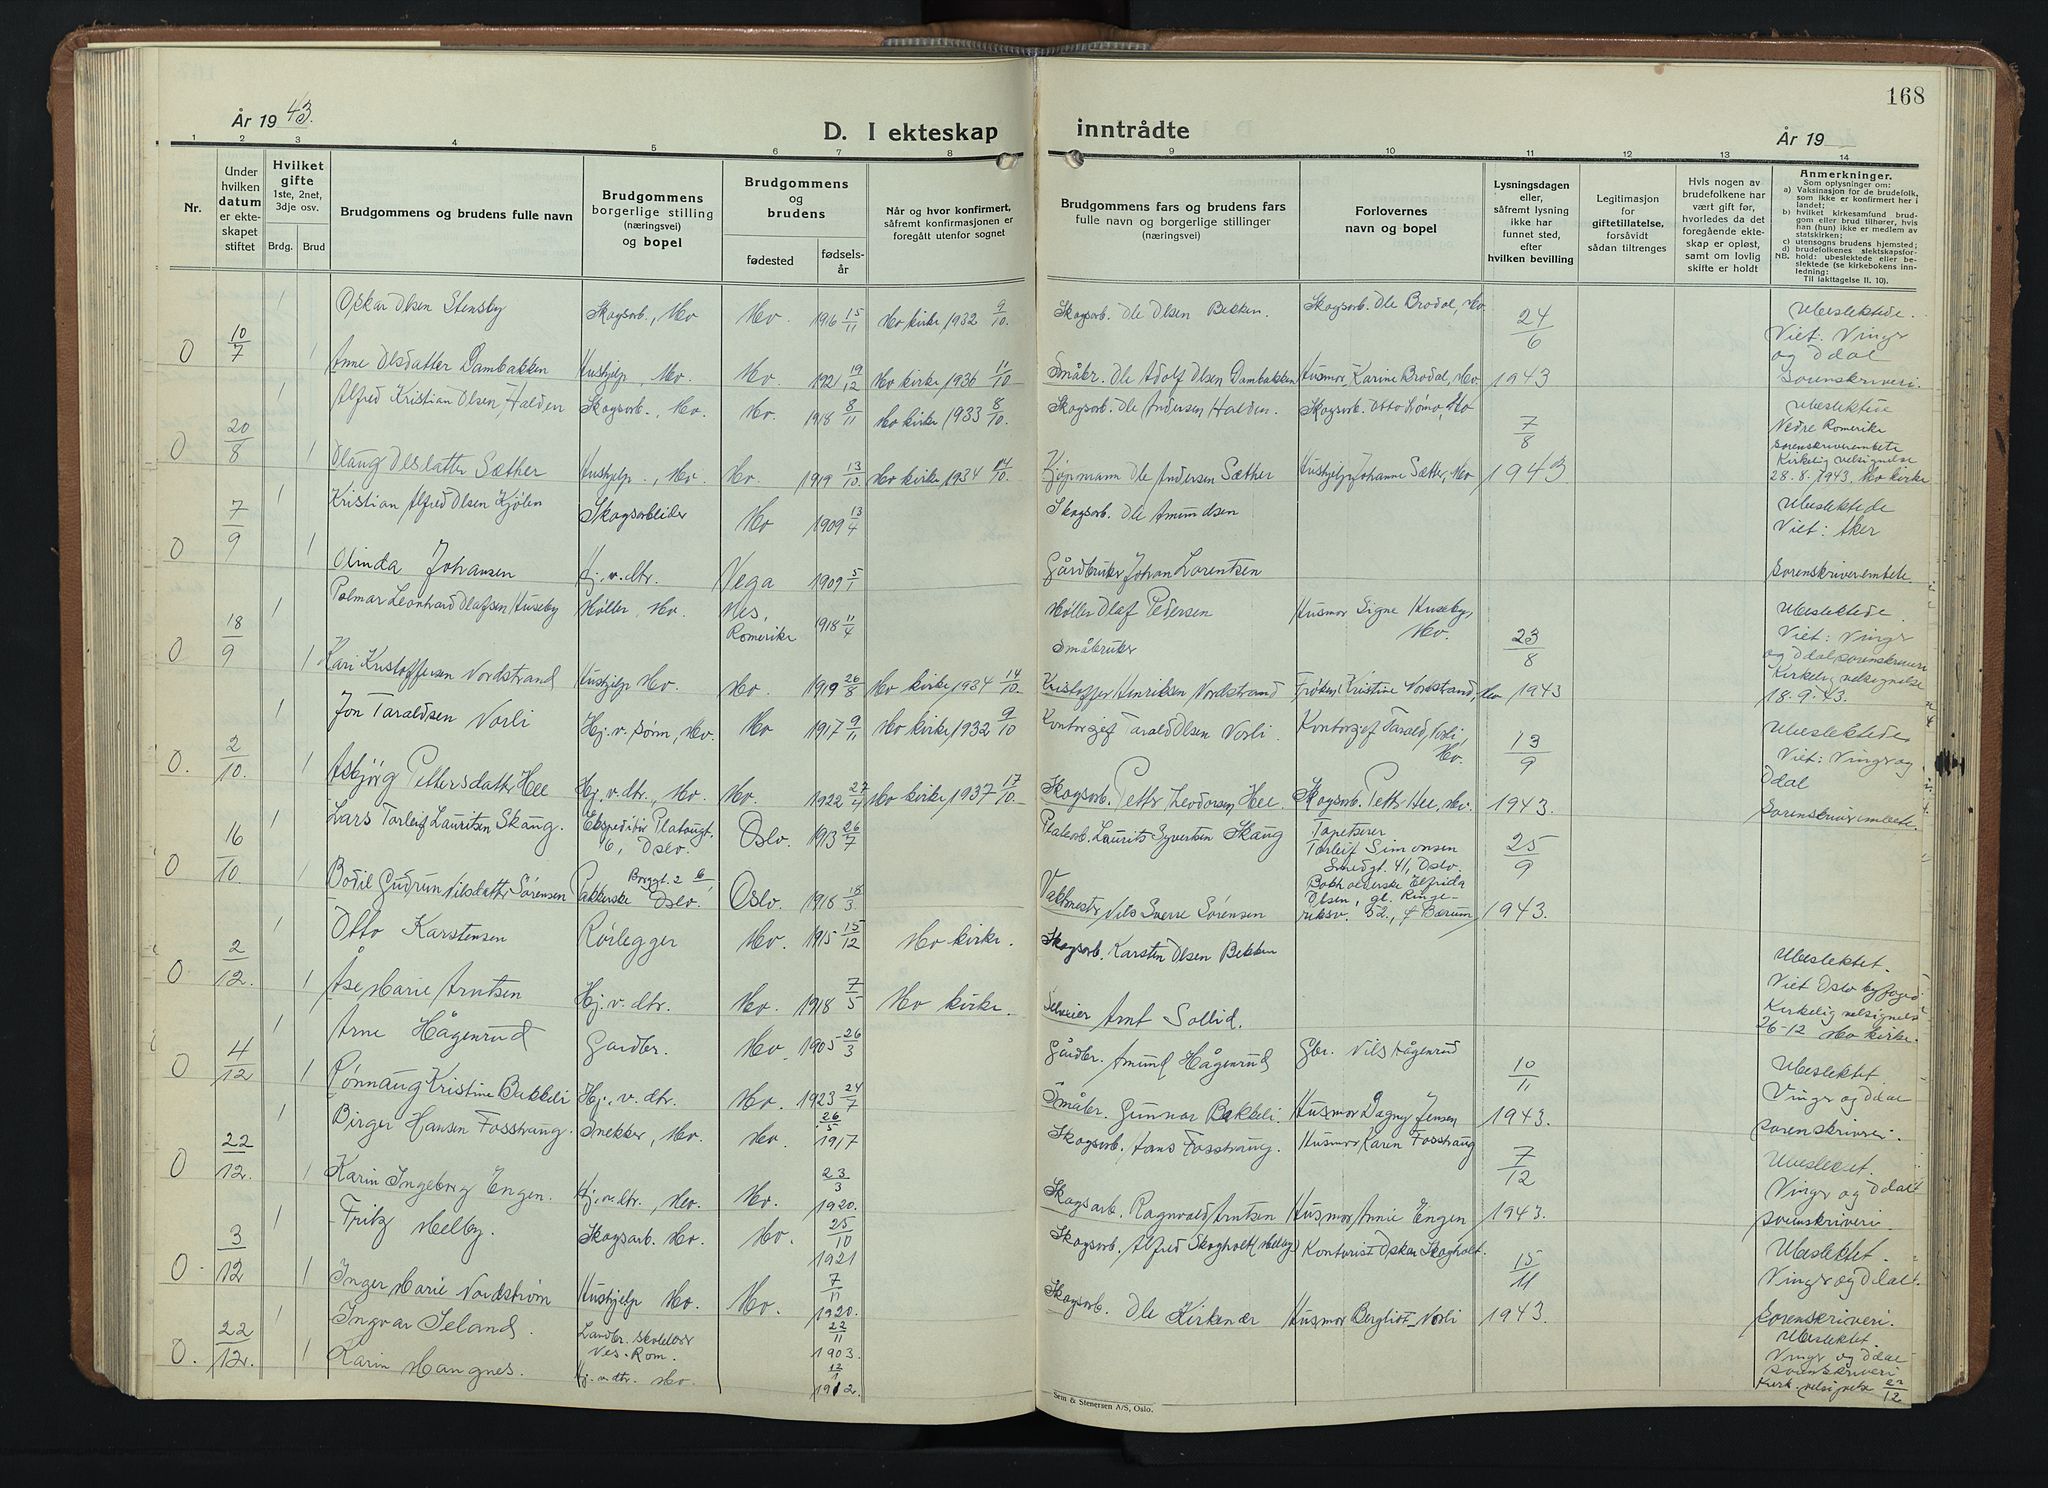 168
År 19 43.
D. I ekteskap inntrådte
År 19
1 2 3 4 5 6 7 8 9 10 11 12 13 14
Nr.
Under hvilken datum er ekteskapet stiftet
Hvilket gifte 1ste, 2net, 3dje osv.
Brdg. Brud
Brudgommens og brudens fulle navn
Brudgommens borgerlige stilling (næringsvei) og bopel
Brudgommens og brudens
fødested
fødselsår
Når og hvor konfirmert, såfremt konfirmasjonen er foregått utenfor sognet
Brudgommens fars og brudens fars fulle navn og borgerlige stillinger (næringsvei)
Forlovernes navn og bopel
Lysningsdagen eller, såfremt lysning ikke har funnet sted, efter hvilken bevilling
Legitimasjon for giftetillatelse, forsåvidt sådan tiltrenges
Hvis nogen av brudefolkene har vært gift før, hvorledes da det foregående ekteskap er opløst, samt om lovlig skifte er holdt
Anmerkninger.
Som oplysninger om:
a) Vaksinasjon for de brudefolk, som ikke er konfirmert her i landet;
b) hvilket kirkesamfund brudgom eller brud tilhører, hvis han (hun) ikke er medlem av statskirken;
c) utensogns brudens hjemsted;
d) brudefolkenes slektskapsforhold: ubeslektede eller beslektede (se kirkebokens innledning:
NB. Til iakttagelse II. 10).
0 10/7 1 Oskar Olsen Stensby Skogsarb., Mo Mo. 1916 15/11 Mo kirke 1932 9/10. Skogsarb. Ole Olsen Bekken. Skogsarb. Ole Brodal, Mo 24/6 Ubeslektede. Viet: Vinger og Odal
1 Anne Olsdatter Dambakken Hushjelp, Mo. Mo. 1921 19/12 Mo kirke 1936 11/10 Småbr. Ole Adolf Olsen Dambakken Husmor Karine Brodal, Mo 1943 Sorenskriveri.
0 20/8 1 Alfred Kristian Olsen Halden Skogsarb., Mo. Mo. 1918 8/11 Mo kirke 1933 8/10. Skogsarb. Ole Andersen Halden. Skogsarb. Otto Mo 7/8 Ubeslektede Nedre Romerike sorenskriverembete
1 Olaug Olsdatter Sæther Hushjelp, Mo. Mo. 1919 13/10. Mo kirke 1934 14/10. Kjøpmann Ole Andersen Sæther Hushjelp Johanne Sæther, Mo 1943 Kirkelig velsignelse 28.8.1943. Mo kirke
0 7/9 1 Kristian Alfred Olsen Kjølen Skogsarbeider Mo 1909 13/4 Skogsarb. Ole Amundsen Ubeslektede Viet: Aker
1 Olinda Johansen Hj. v. dtr. Vega 1909 5/1 Gårdbruker Johan Lorentsen Sorenskriverembete
0 18/9 1 Palmar Leonhard Olafsen Huseby Møller, Mo Nes, Romerike 1918 11/4 Møller Olaf Pedersen Husmor Signe Huseby, Mo. 23/8 Ubeslektede Viet: Vinger og Odal sorenskriveri
1 Kari Kristoffersen Nordstrand Hushjelp Mo. Mo. 1919 26/8 Mo kirke 1934 14/10. Småbruker Kristoffer Henriksen Nordstrand Frøken Kristine Nordstrand, Mo 1943 Kirkelig velsignelse 18.9.43.
0. 2/10. 1 Jon Taraldsen Norli Hj. v. sønn, Mo. Mo 1917 9/11 Mo kirke 1932 9/10 Kontorsjef Tarald Olsen Norli. Kontorsjef Tarald Norli, Mo. 13/9 Ubeslektede Viet: Vinger og Odal
1 Asbjørg Pettersdatter Hee Hj. v. dtr., Mo. Mo. 1922 Mo kirke 1937 17/10. Skogsarb. Petter Hee Skogsarb. Petter Hee, Mo. 1943. Sorenskriverembete.
0 16/10. 1 Lars Torleif Lauritsen Skaug. Ekspeditør Platougt. 6, Oslo. Oslo. 1913 26/7 Platearb. Laurits Syvertsen Skaug Tapetserer Torleif Simonsen Smedgt. 41, Oslo. 25/9
1 Bodil Gudrun Nilsdatter Sørensen Pakkerske Borggt. 2 Oslo. Oslo. 1918 18/3. Vaktmester Nils Sverre Sørensen Bokholderske Elfrida Olsen, gl. Ringeriksv. 52., Bærum 1943.
0 2/12. 1 Otto Karstensen Rørlegger Mo. 1915 15/12 Mo kirke. Skogsarb. Karsten Olsen Bekken Ubeslektet. Viet Oslo byfoged.
1 Åse Marie Arntsen Hj. v. dtr. Mo. 1918 7/5 Mo kirke. Selveier Arnt Sollid. Kirkelig velsignelse 26-12 Mo kirke.
0 4/12 1 Arne Hågenrud Gardbr. Mo. 1905 26/3 Gårdbr. Amund Hågenrud Gbr. Nils Hågenrud 10/11 Ubeslektet Vinger og Odal
1 Rønnaug Kristine Bakkeli Hj. v. dtr. Mo. 1923 24/7 Småbr. Gunnar Bakkeli Husmor Dagny Jensen 1943. sorenskriveri.
0 22/12. 1 Birger Hansen Fosstraug. Snekker, Mo. Mo. 26/5 1917 Skogsarb. Hans Fosstraug. Husmor Karen Fosstraug 7/12 Ubeslektet. Vinger og Odal
1 Karin Ingeborg Engen. Hj. v. dtr., Mo. Mo. 23/3 1920. Skogsarb. Ragnvald Arntsen Husmor Annie Engen 1943. sorenskriveri.
0. 3/12 1 Fritz Melby. Skogsarb. Mo. Mo. 25/10 1921 Skogsarb. Alfred Skogholt (Melby) Kontorist Oskar Skogholt. 15/11 Ubeslektet. Vinger og Odal
1 Inger Marie Nordstrøm Hushjelp Mo. Mo. 7/11 1920. Skogsarb. Ole Kirkenær Husmor Bergliot Norli 1943. Sorenskriveri.
0. 22/12. 1 Ingvar Seland. Landbr. skolelærer Nes. Rom. 22/11 1903. Ubeslektet. Vinger og Odal sorenskriveri
1 Karin Mangnes. Hj. v. dtr. Mo. 12/1 1912. Kirk. velsignelse 22/12
Sem & Stenersen A/S, Oslo.